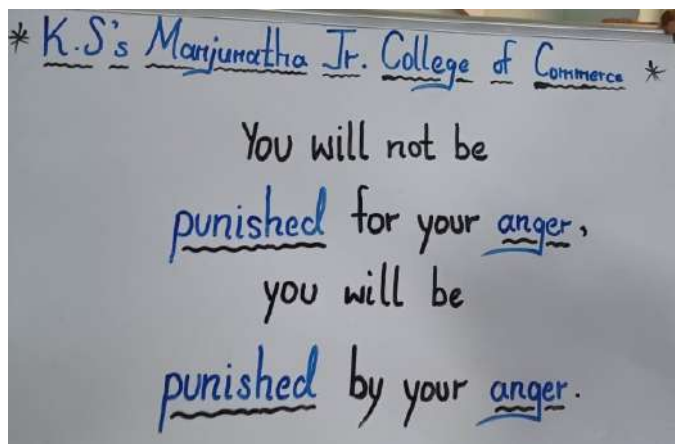 * K.S's Manjunatha Jr. College of Commerce *
You will not be
punished for your anger,
you will be
punished by your anger.